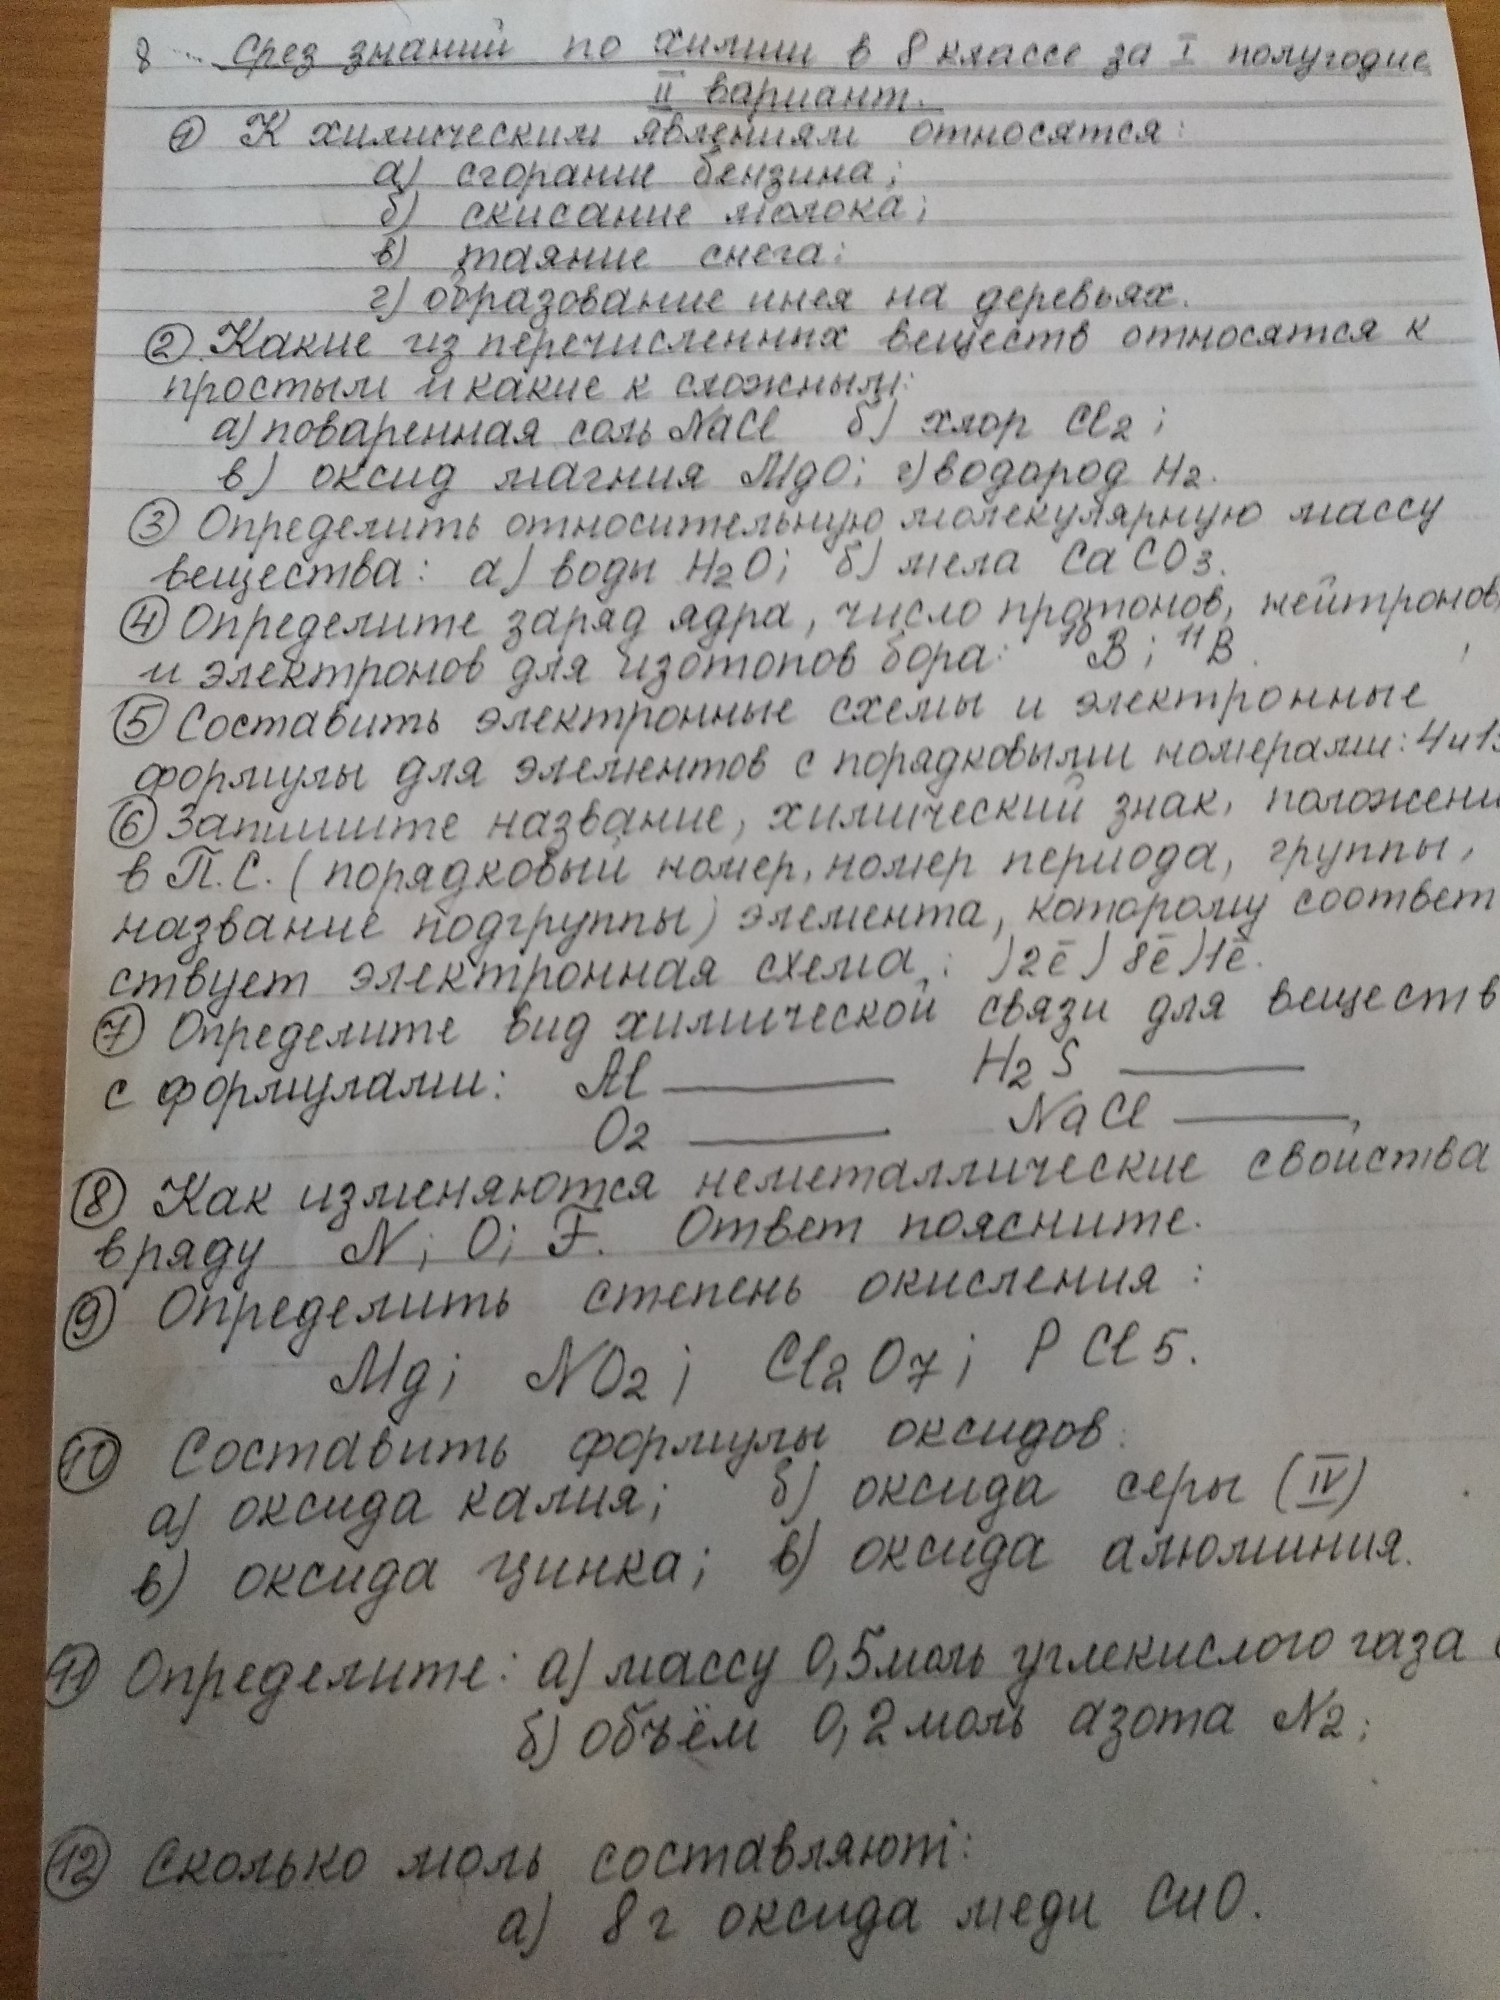 8 Срез знаний по химии в 8 классе за I полугодие
II вариант.
1 К химическим явлениям относятся:
а) сгорание бензина;
б) скисание молока;
в) таяние снега;
г) образование инея на деревьях.
2 Какие из перечисленных веществ относятся к
простым и какие к сложным:
а) поваренная соль NaCl б) хлор Cl2;
в) оксид магния MgO; г) водород H2.
3 Определить относительную молекулярную массу
вещества: а) воды H2O; б) мела CaCO3.
4 Определите заряд ядра, число протонов, нейтронов,
и электронов для изотопов бора: 10B; 11B.
5 Составить электронные схемы и электронные
формулы для элементов с порядковыми номерами: 4 и
6 Запишите название, химический знак, положени
в П.С. (порядковый номер, номер периода, группы,
название подгруппы) элемента, которому соответ
ствует электронная схема: )2ē )8ē )1ē.
7 Определите вид химической связи для веществ
с формулами: Al ____ H2S ____
O2 ____ NaCl ____,
8 Как изменяются неметаллические свойства
в ряду N; O; F. Ответ поясните.
9 Определить степень окисления:
Mg; NO2; Cl2O7; PCl5.
10 Составить формулы оксидов:
а) оксида калия; б) оксида серы (IV)
в) оксида цинка; в) оксида алюминия.
11 Определите: а) массу 0,5 моль углекислого газа
б) объём 0,2 моль азота N2;
12 Сколько моль составляют:
а) 8 г оксида меди CuO.